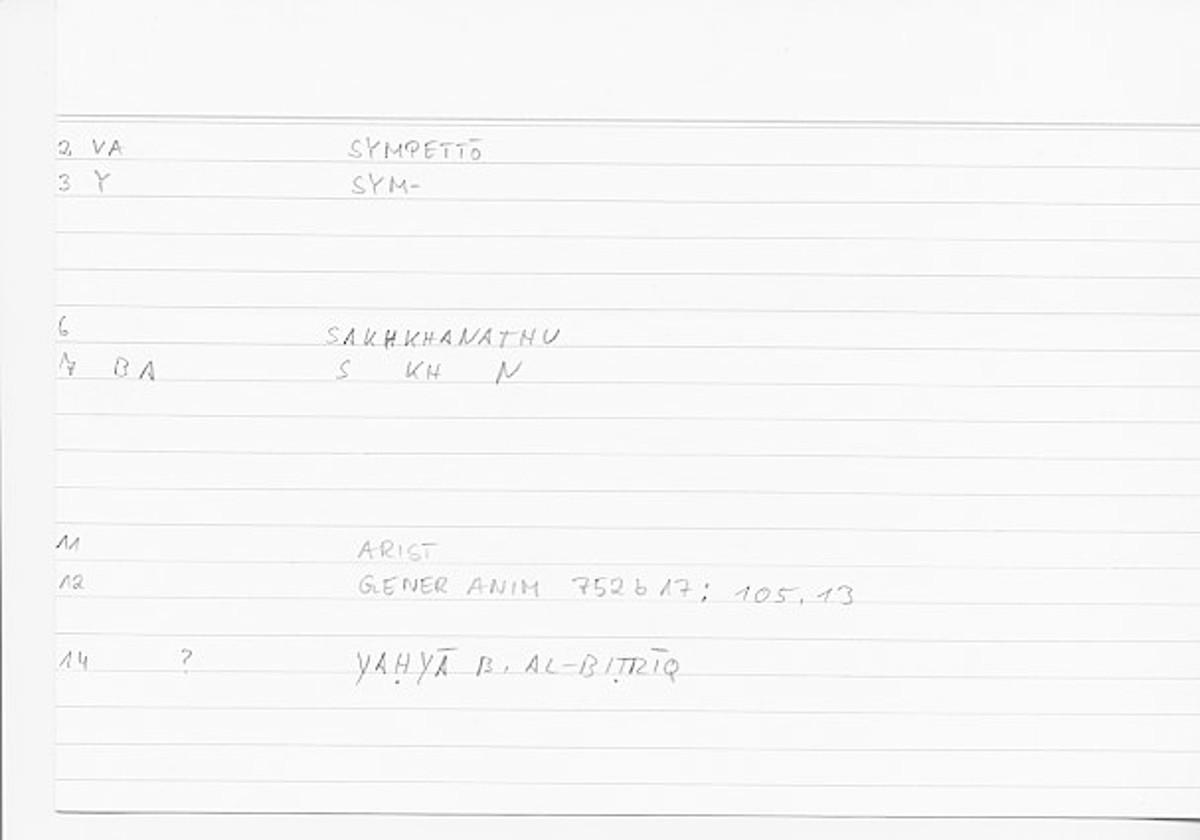 2 VA SYMPETTŌ
3 Y SYM-
6 SAKHKHANATHU
7 BA S KH N
11 ARIST
12 GENER ANIM 752 b 17: 105, 13
14 ? YAḤYĀ B. AL-BIṬRĪQ